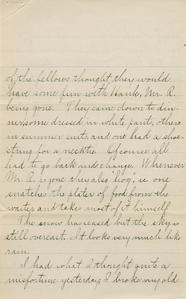 of the fellows thought they would
have some fun with Hank, Mr. R.
being gone. They came down to din-
ner some dressed in white pants, others
in summer suits and one had a shoe-
string for a necktie. Of course all
had to go back and change. Whenever
Mr. R. is gone they also "Hog", i.e. one
snatches the platter of food from the
waiter and takes most of it himself.
The snow has ceased but the sky is
still overcast. It looks very much like
rain.
I had what I thought quite a
misfortune yesterday. I broke my old